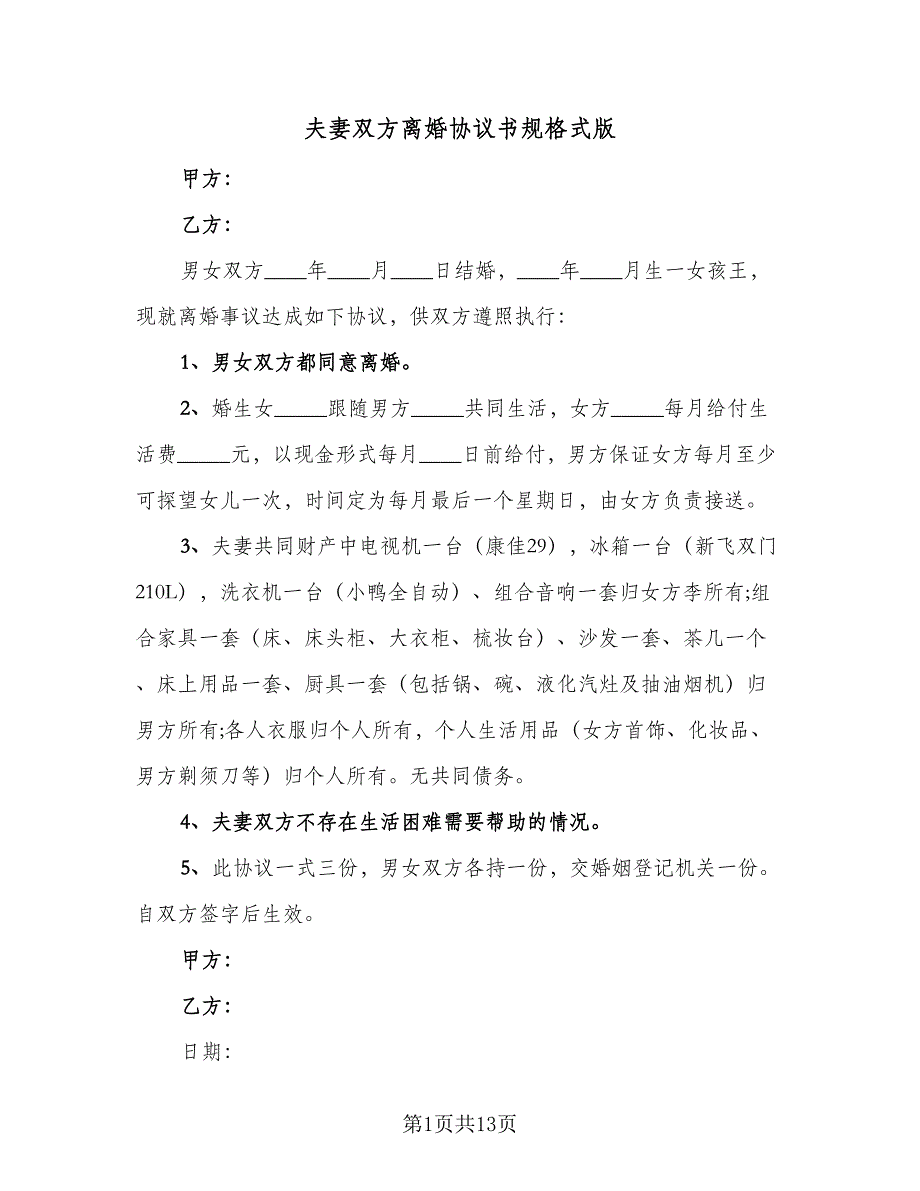 夫妻双方离婚协议书规格式版
甲方：
乙方：
男女双方____年____月____日结婚，____年____月生一女孩王，
现就离婚事议达成如下协议，供双方遵照执行：
1、男女双方都同意离婚。
2、婚生女_____跟随男方_____共同生活，女方_____每月给付生
活费_____元，以现金形式每月____日前给付，男方保证女方每月至少
可探望女儿一次，时间定为每月最后一个星期日，由女方负责接送。
3、夫妻共同财产中电视机一台（康佳29），冰箱一台（新飞双门
210L），洗衣机一台（小鸭全自动）、组合音响一套归女方李所有;组
合家具一套（床、床头柜、大衣柜、梳妆台）、沙发一套、茶几一个
、床上用品一套、厨具一套（包括锅、碗、液化汽灶及抽油烟机）归
男方所有;各人衣服归个人所有，个人生活用品（女方首饰、化妆品、
男方剃须刀等）归个人所有。无共同债务。
4、夫妻双方不存在生活困难需要帮助的情况。
5、此协议一式三份，男女双方各持一份，交婚姻登记机关一份。
自双方签字后生效。
甲方：
乙方：
日期：
第1页共13页